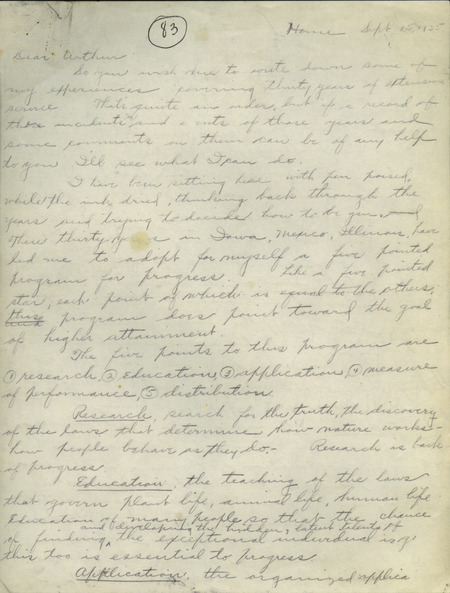 83
Home Sept 1925
Dear Arthur
So you wish me to write down some of
my experiences covering thirty years of extension
service This quite an order, but if a record of
these incidents and events of those years and
some comments on them can be of any help
to you I'll see what I can do.
I have been sitting here with pen poised,
while the ink dried, thinking back through the
years and trying to decide how to begin, and
these thirty years in Iowa, Mexico, Illinois, have
led me to adopt for myself a five pointed
program for progress. Like a five pointed
star, each point of which is equal to the others,
this program does point toward the goal
of higher attainment.
The five points to this program are
① research, ② Education, ③ application, ④ measure
of performance, ⑤ distribution.
Research, search for the truth, the discovery
of the laws that determine how nature works -
how people behave as they do, - Research is back
of progress.
Education, the teaching of the laws
that govern plant life, animal life, human life
Education of many people so that the chance
and developing the hidden, latent talents of
of finding the exceptional individual is
this too is essential to progress
Application, the organized applica